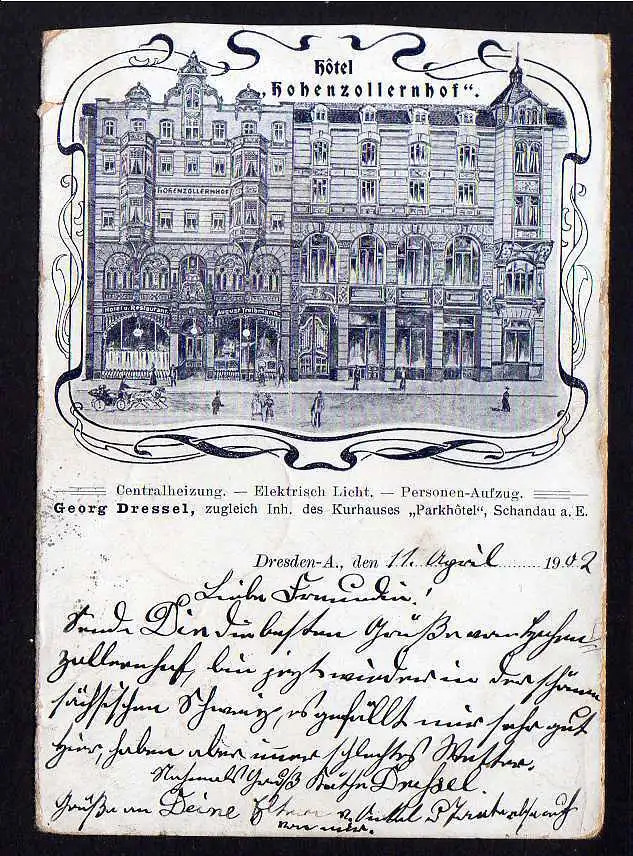 Hôtel
„Hohenzollernhof“.
HOHENZOLLERNHOF
Hotel u. Restaurant
August Treibmann
Centralheizung. — Elektrisch Licht. — Personen-Aufzug.
Georg Dressel, zugleich Inh. des Kurhauses „Parkhôtel“, Schandau a. E.
Dresden-A., den 11. April 1902
Liebe Freundin!
Sende Dir die besten Grüße vom Hohen-
zollernhof, bin jetzt wieder in der schönen
sächsischen Schweiz, es gefällt mir sehr gut
hier, haben aber immer schlechtes Wetter.
Nochmals Gruß Käthe Dressel.
Grüße an Deine Eltern v. Onkel u Tante
von mir.